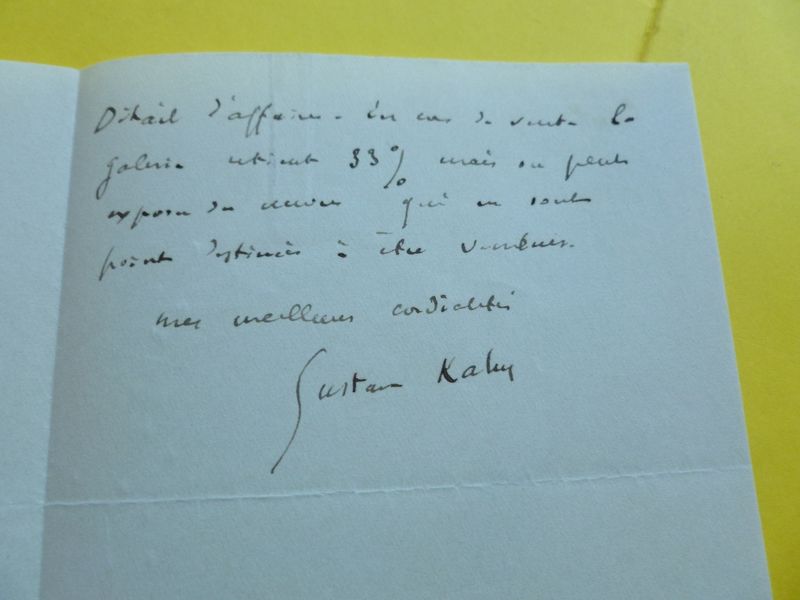 Détail d'affaires. En cas de vente la
galerie retient 33% mais on peut
exposer des œuvres qui ne sont
point destinées à être vendues.
mes meilleures cordialités
Gustave Kahn